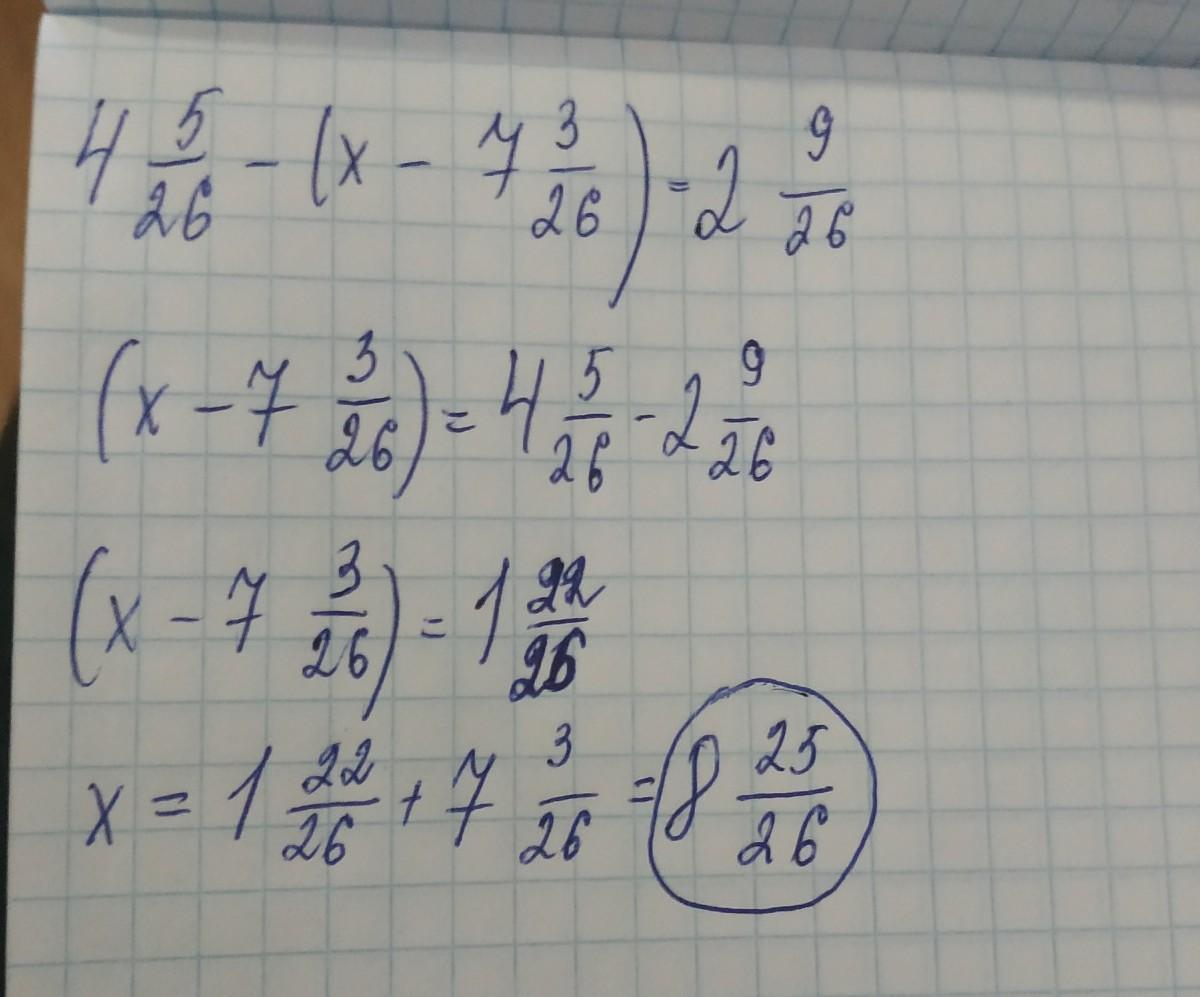 4 5/26 - (x - 7 3/26) = 2 9/26
(x - 7 3/26) = 4 5/26 - 2 9/26
(x - 7 3/26) = 1 22/26
x = 1 22/26 + 7 3/26 = 8 25/26